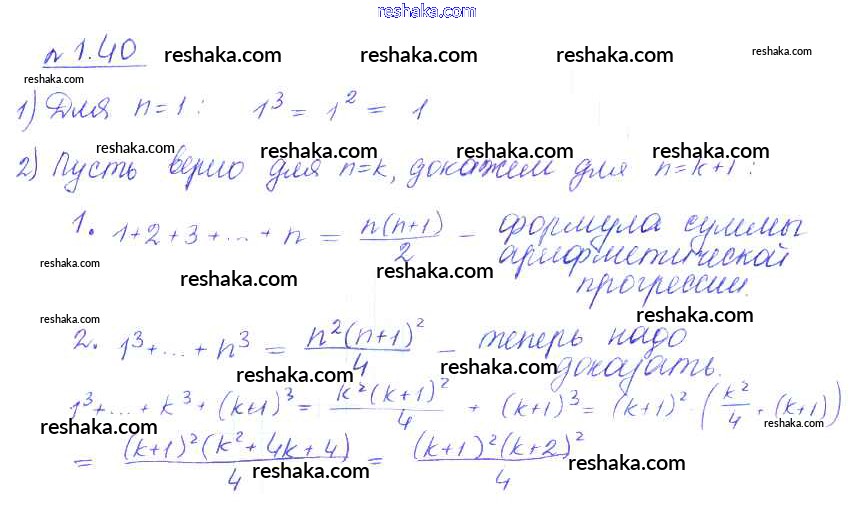 reshaka.com
№ 1.40 reshaka.com reshaka.com reshaka.com
reshaka.com
1) Для n=1: 1³ = 1² = 1
reshaka.com reshaka.com reshaka.com
2) Пусть верно для n=k, докажем для n=k+1:
1. 1+2+3+...+n = n(n+1)/2 – формула суммы
арифметической
reshaka.com reshaka.com reshaka.com reshaka.com
прогрессии.
reshaka.com reshaka.com reshaka.com
2. 1³+...+n³ = n²(n+1)²/4 – теперь надо
доказать.
reshaka.com reshaka.com
1³+...+k³+(k+1)³ = k²(k+1)²/4 + (k+1)³ = (k+1)²·(k²/4+(k+1))
reshaka.com reshaka.com reshaka.com
= (k+1)²(k²+4k+4)/4 = (k+1)²(k+2)²/4
reshaka.com reshaka.com